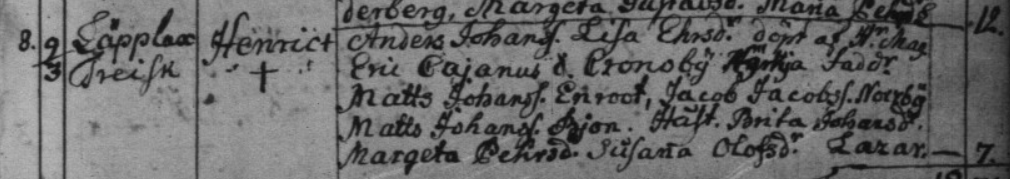 derberg, Margeta Gustavsd. Maria Pehrsd 12.
8. 9/3 Lapplax Henrict Anders Johanss. Lisa Ehrsdr döpt af Hr Mag
Treisk † Eric Cajanus i Cronoby Kyrkja Faddr
Matts Johanss. Enroot, Jacob Jacobss. Norrby
Matts Johanss. Björn. Hust. Brita Johansdr
Margeta Pehrsdr Susana Olofsdr Lazar. — 7.